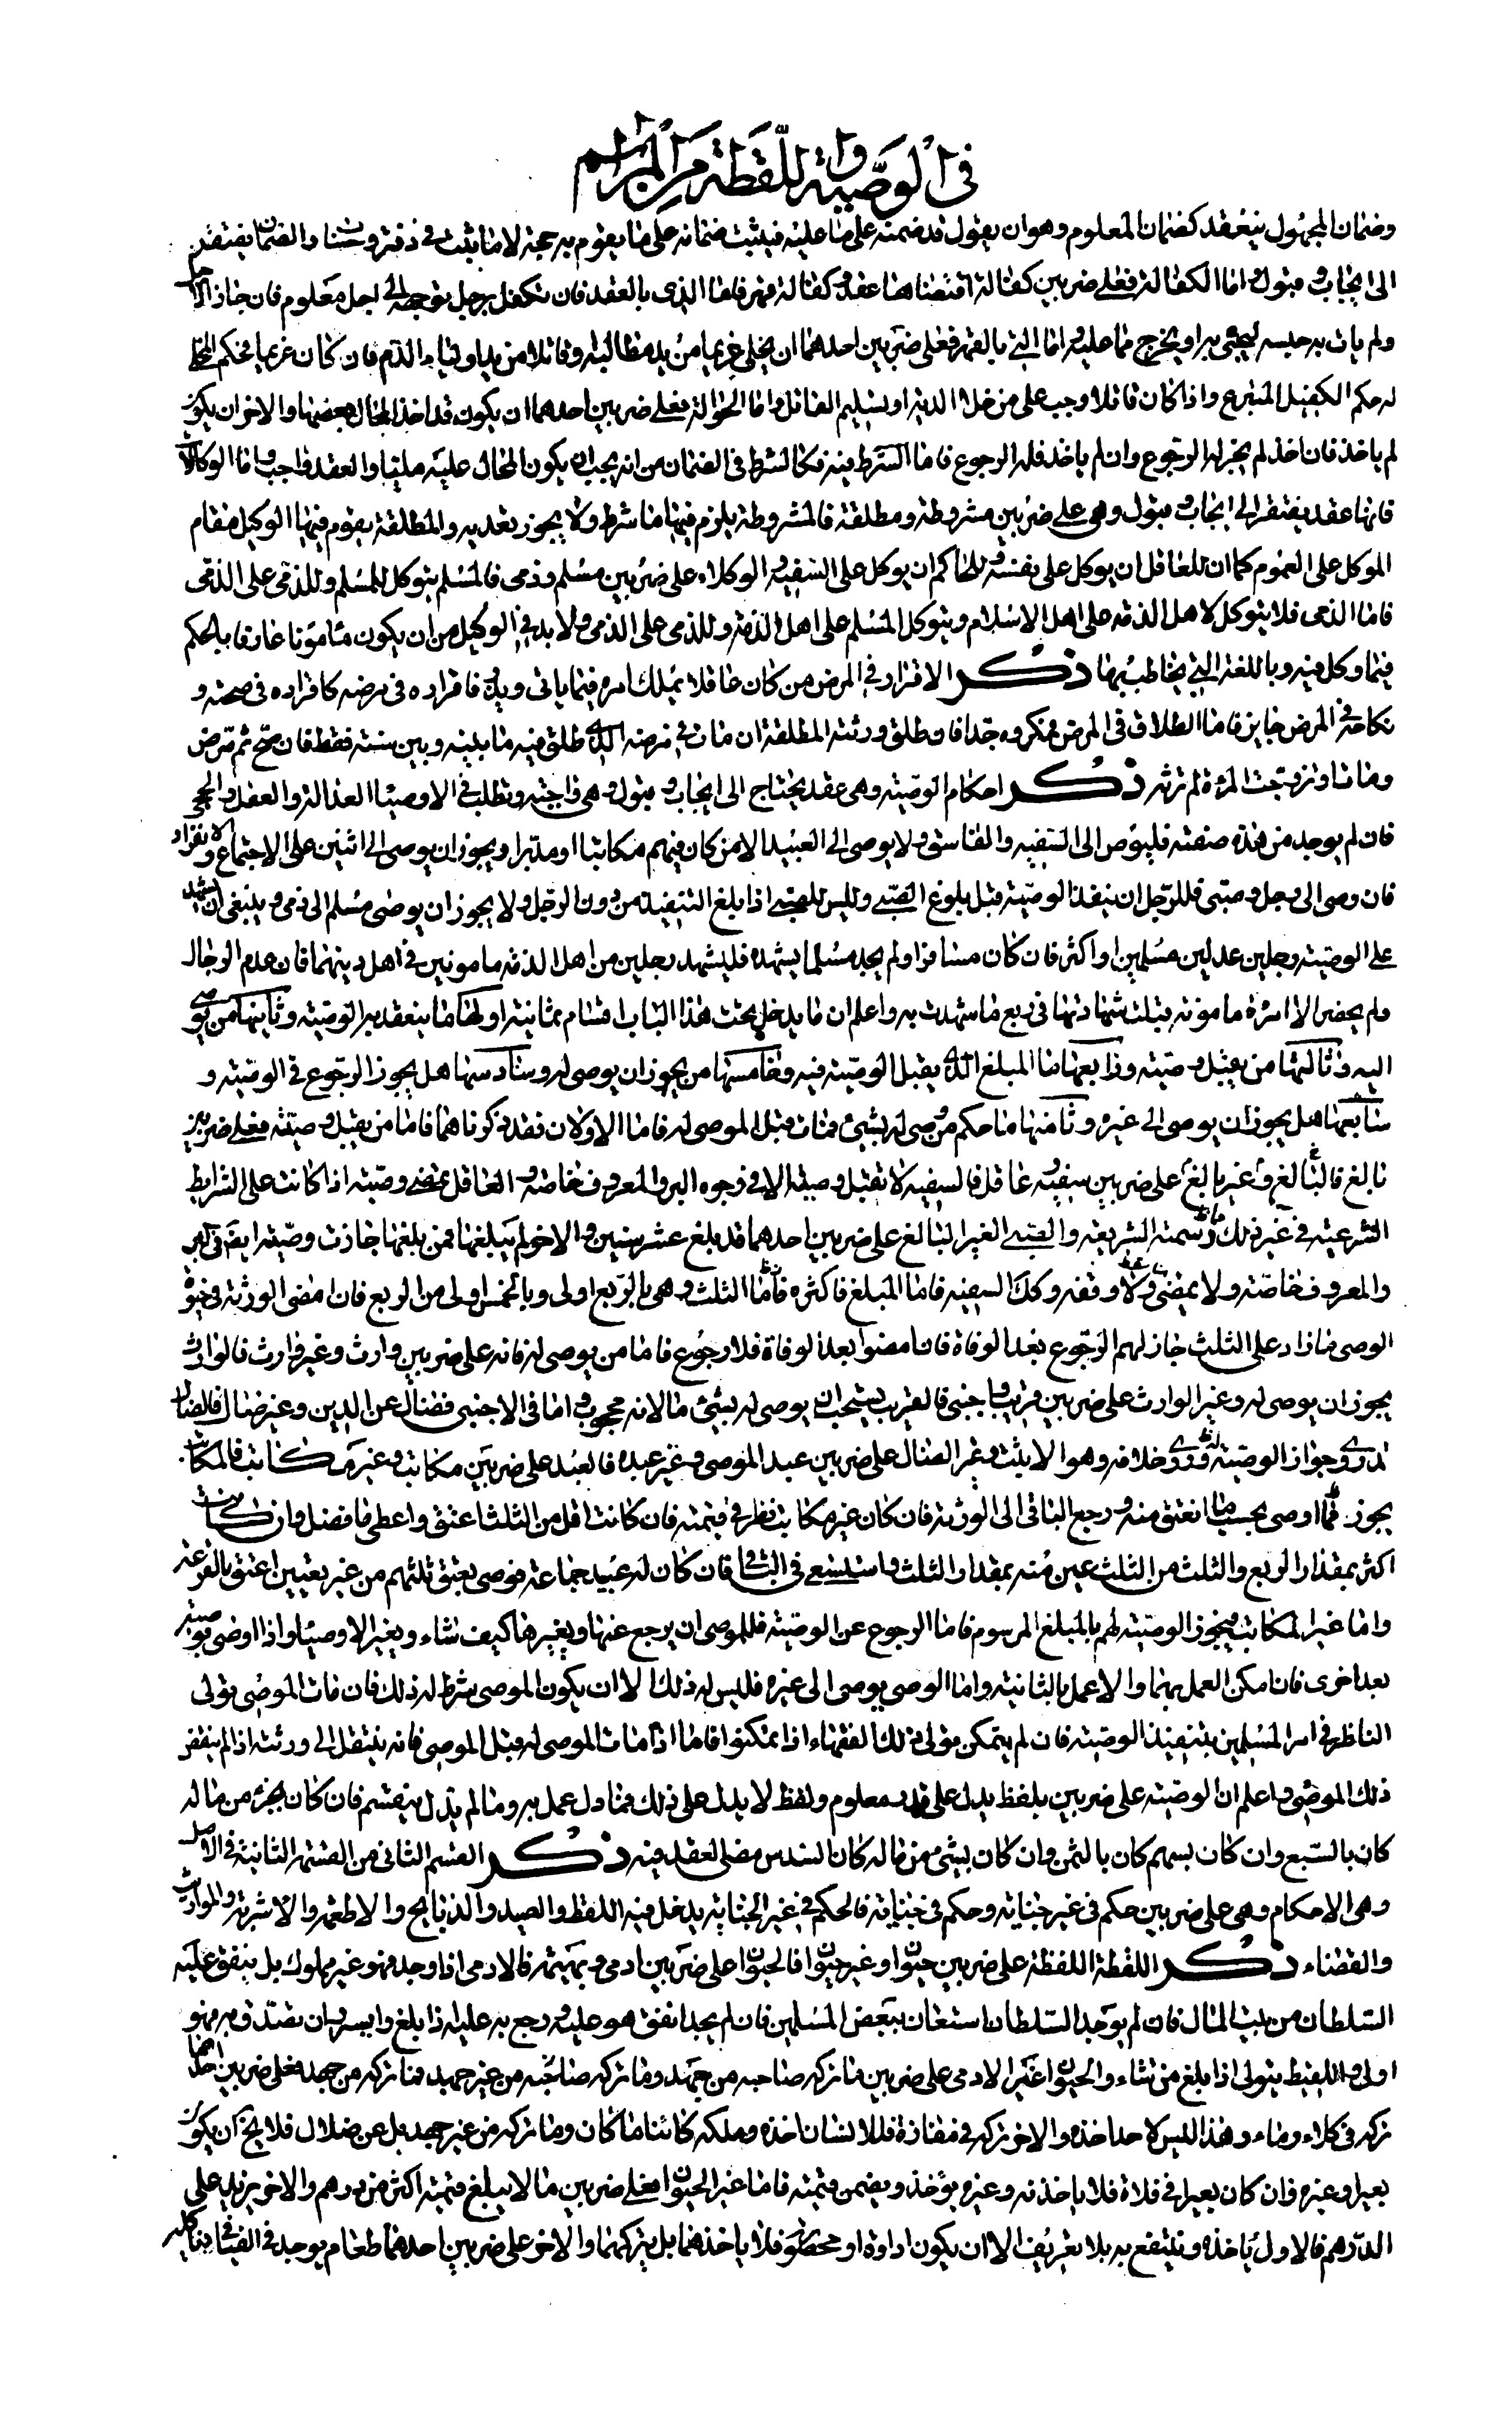 في الوصية واللقطة من المراسم
وضمان المجهول ينعقد كضمان المعلوم وهو ان يقول قد ضمنته على ما عليه فيثبت ضمانه على ما يقوم به حجة لا ما يثبت في دفتر وحساب والضمان يفتقر
الى ايجاب وقبول واما الكفالة فعلى ضربين كفالة اقتضاها عقد وكفالة قهر فاما الذي بالعقد فان تكفل برجل بوجهه الى اجل معلوم فان جاز الاجل
ولم يات به حبسه ليجئ به او يخرج مما عليه واما التي بالقهر فعلى ضربين احدهما ان يخلي غريما من يد مطالبه وقاتلا من يد اولياء الدم فان كان غريما فحكم المخلي
له حكم الكفيل المتبرع واذا كان قاتلا وجب على من خلاه الدية او تسليم القاتل واما الحوالة فعلى ضربين احدهما ان يكون قد اخذ المحال بعضها والاخر ان يكون
لم ياخذ فان اخذ لم يجز له الرجوع وان لم ياخذ فله الرجوع فاما الشرط فيه فكالشرط في الضمان من انه يجب ان يكون المحال عليه مليا والعقد واجب واما الوكالة
فانها عقد يفتقر الى ايجاب وقبول وهي على ضربين مشروطة ومطلقة فالمشروطة يلزم فيها ما شرط ولا يجوز تعديه والمطلقة يقوم فيها الوكيل مقام
الموكل على العموم كما ان للعاقل ان يوكل على نفسه وللحاكم ان يوكل على السفيه والوكلاء على ضربين مسلم وذمي فالمسلم يتوكل للمسلم وللذمي على الذمي
فاما الذمي فلا يتوكل لاهل الذمة على اهل الاسلام ويتوكل المسلم على اهل الذمة وللذمي على الذمي ولا بد في الوكيل من ان يكون مامونا عارفا بالحكم
فيما وكل فيه وباللغة التي يخاطب بها ذكر الاقرار في المرض من كان عاقلا يملك امره فيما ياتي ويذر فاقراره في مرضه كاقراره في صحته و
نكاحه في المرض جايز فاما الطلاق في المرض فمكروه جدا فان طلق ورثته المطلقة ان مات في مرضه الذي طلق فيه ما بينه وبين سنة فقط فان صح ثم مرض
ومات او تزوجت المرءة لم ترثه ذكر احكام الوصية وهي عقد يحتاج الى ايجاب وقبول وهي واجبة ويطلب في الاوصياء العدالة والعقل والحجى
فان لم يوجد من هذه صفته فليوص الى السفيه والفاسق ولا يوصى الى العبيد الا من كان فيهم مكاتبا او مدبرا ويجوز ان يوصي الى اثنين على الاجتماع والانفراد
فان وصى الى رجل وصبي فللرجل ان ينفذ الوصية قبل بلوغ الصبي وليس للصبي اذا بلغ التنفيذ من دون الرجل ولا يجوز ان يوصي مسلم الى ذمي وينبغي ان يشهد
على الوصية رجلين عدلين مسلمين او اكثر فان كان مسافرا ولم يجد مسلما يشهده فليشهد رجلين من اهل الذمة مامونين في اهل دينهما فان عدم الرجال
ولم يحضر الا امرءة مامونة قبلت شهادتها في ربع ما شهدت به واعلم ان ما يدخل تحت هذا الباب اقسام ثمانية اولها ما ينعقد به الوصية وثانيها من يوصي
اليه وثالثها من يقبل وصيته ورابعها ما المبلغ الذي يقبل الوصية فيه وخامسها من يجوز ان يوصى له وسادسها هل يجوز الرجوع في الوصية و
سابعها هل يجوز ان يوصي الى غيره وثامنها ما حكم من وصي له بشئ فمات قبل الموصي له فاما الاولان فقد ذكرناهما فاما من يقبل وصيته فعلى ضربين
بالغ وغير بالغ فالبالغ على ضربين سفيه وعاقل فالسفيه لا تقبل وصيته الا في وجوه البر والمعروف خاصة والعاقل تمضى وصيته اذا كانت على الشرايط
الشرعية في غير ذلك ما رسمته الشريعة والصبي الغير البالغ على ضربين احدهما قد بلغ عشر سنين والاخر لم يبلغها فمن بلغها جازت وصيته ايضا في البر
والمعروف خاصة ولا يمضى هبته ولا وقفه وكذلك السفيه فاما المبلغ فاكثره الثلث وهي بالربع اولى وبالخمس اولى من الربع فان امضى الورثة في حيوة
الوصي ما زاد على الثلث جاز لهم الرجوع بعد الوفاة فان امضوا بعد الوفاة فلا رجوع فاما من يوصى له فانه على ضربين وارث وغير وارث فالوارث
يجوز ان يوصى له وغير الوارث على ضربين قريب واجنبي فالقريب يستحب ان يوصى له بشئ ما لانه محجوب واما في الاجنبي فضال عن الدين وغير ضال فالضال
قد روي جواز الوصية له وروي خلافه وهو الاثبت وغير الضال على ضربين عبد الموصي وغير عبده فالعبد على ضربين مكاتب وغير مكاتب فالمكاتب
يجوز فيما اوصى بحساب ما انعتق منه ورجع الباقي الى الورثة فان كان غير مكاتب نظر في قيمته فان كانت اقل من الثلث اعتق واعطى ما فضل وان كانت
اكثر بمقدار الربع والثلث من الثلث عتق منه بمقدار الثلث واستسعي في الباقي فان كان له عبيد جماعة فوصى بعتق ثلثهم من غير تعيين اعتق بالقرعة
واما غير المكاتب فيجوز الوصية لهم بالمبلغ المرسوم فاما الرجوع عن الوصية فللموصي ان يرجع عنها ويغيرها كيف شاء ويغير الاوصياء واذا اوصى بوصية
بعد اخرى فان امكن العمل بهما والا عمل بالثانية واما الوصي يوصي الى غيره فليس له ذلك الا ان يكون الموصي شرط له ذلك فان مات الموصى تولى
الناظر في امر المسلمين بتنفيذ الوصية فان لم يتمكن تولى ذلك الفقهاء اذا تمكنوا فاما اذا مات الموصى له قبل الموصي فانه ينتقل الى ورثته اذا لم ينقض
ذلك الموصي واعلم ان الوصية على ضربين بلفظ يدل على قدر معلوم ولفظ لا يدل على ذلك فما دل عمل به وما لم يدل ينقسم فان كان بجزء من ماله
كان بالسبع وان كان بسهم كان بالثمن وان كان بشئ من ماله كان السدس مضى العقد فيه ذكر القسم الثاني من القسمة الثانية في الاصل
وهي الاحكام وهي على ضربين حكم في غير جناية وحكم في جناية فالحكم في غير الجناية يدخل فيه اللقط والصيد والذبايح والاطعمة والاشربة والمواريث
والقضاء ذكر اللقطة اللقطة على ضربين حيوان وغير حيوان فالحيوان على ضربين ادمي وبهيمة فالادمي اذا وجد فهو غير مملوك بل ينفق عليه
السلطان من بيت المال فان لم يوجد السلطان استعان ببعض المسلمين فان لم يجد انفق هو عليه ورجع به عليه اذا بلغ وايسر وان تصدق به فهو
اولى واللقيط يتولى اذا بلغ من شاء والحيوان غير الادمي على ضربين ما تركه صاحبه من جهد وما تركه صاحبه من غير جهد فما تركه من جهد فعلى ضربين احدهما
تركه في كلاء وماء وهذا ليس لاحد اخذه والاخر تركه في مفازة فللانسان اخذه وملكه كائنا ما كان وما تركه من غير جهد بل عن ضلال فلا يخ ان يكون
بعيرا وغيره فان كان بعيرا في فلاة فلا ياخذنه وغيره يؤخذ ويضمن قيمته فاما غير الحيوان فعلى ضربين ما لا يبلغ قيمته اكثر من درهم والاخر يزيد على
الدرهم فالاول ياخذه وينتفع به بلا تعريف الا ان يكون اداوة او مخصرة فلا ياخذهما بل يتركهما والاخر على ضربين احدهما طعام يوجد في الفيافي فياكله